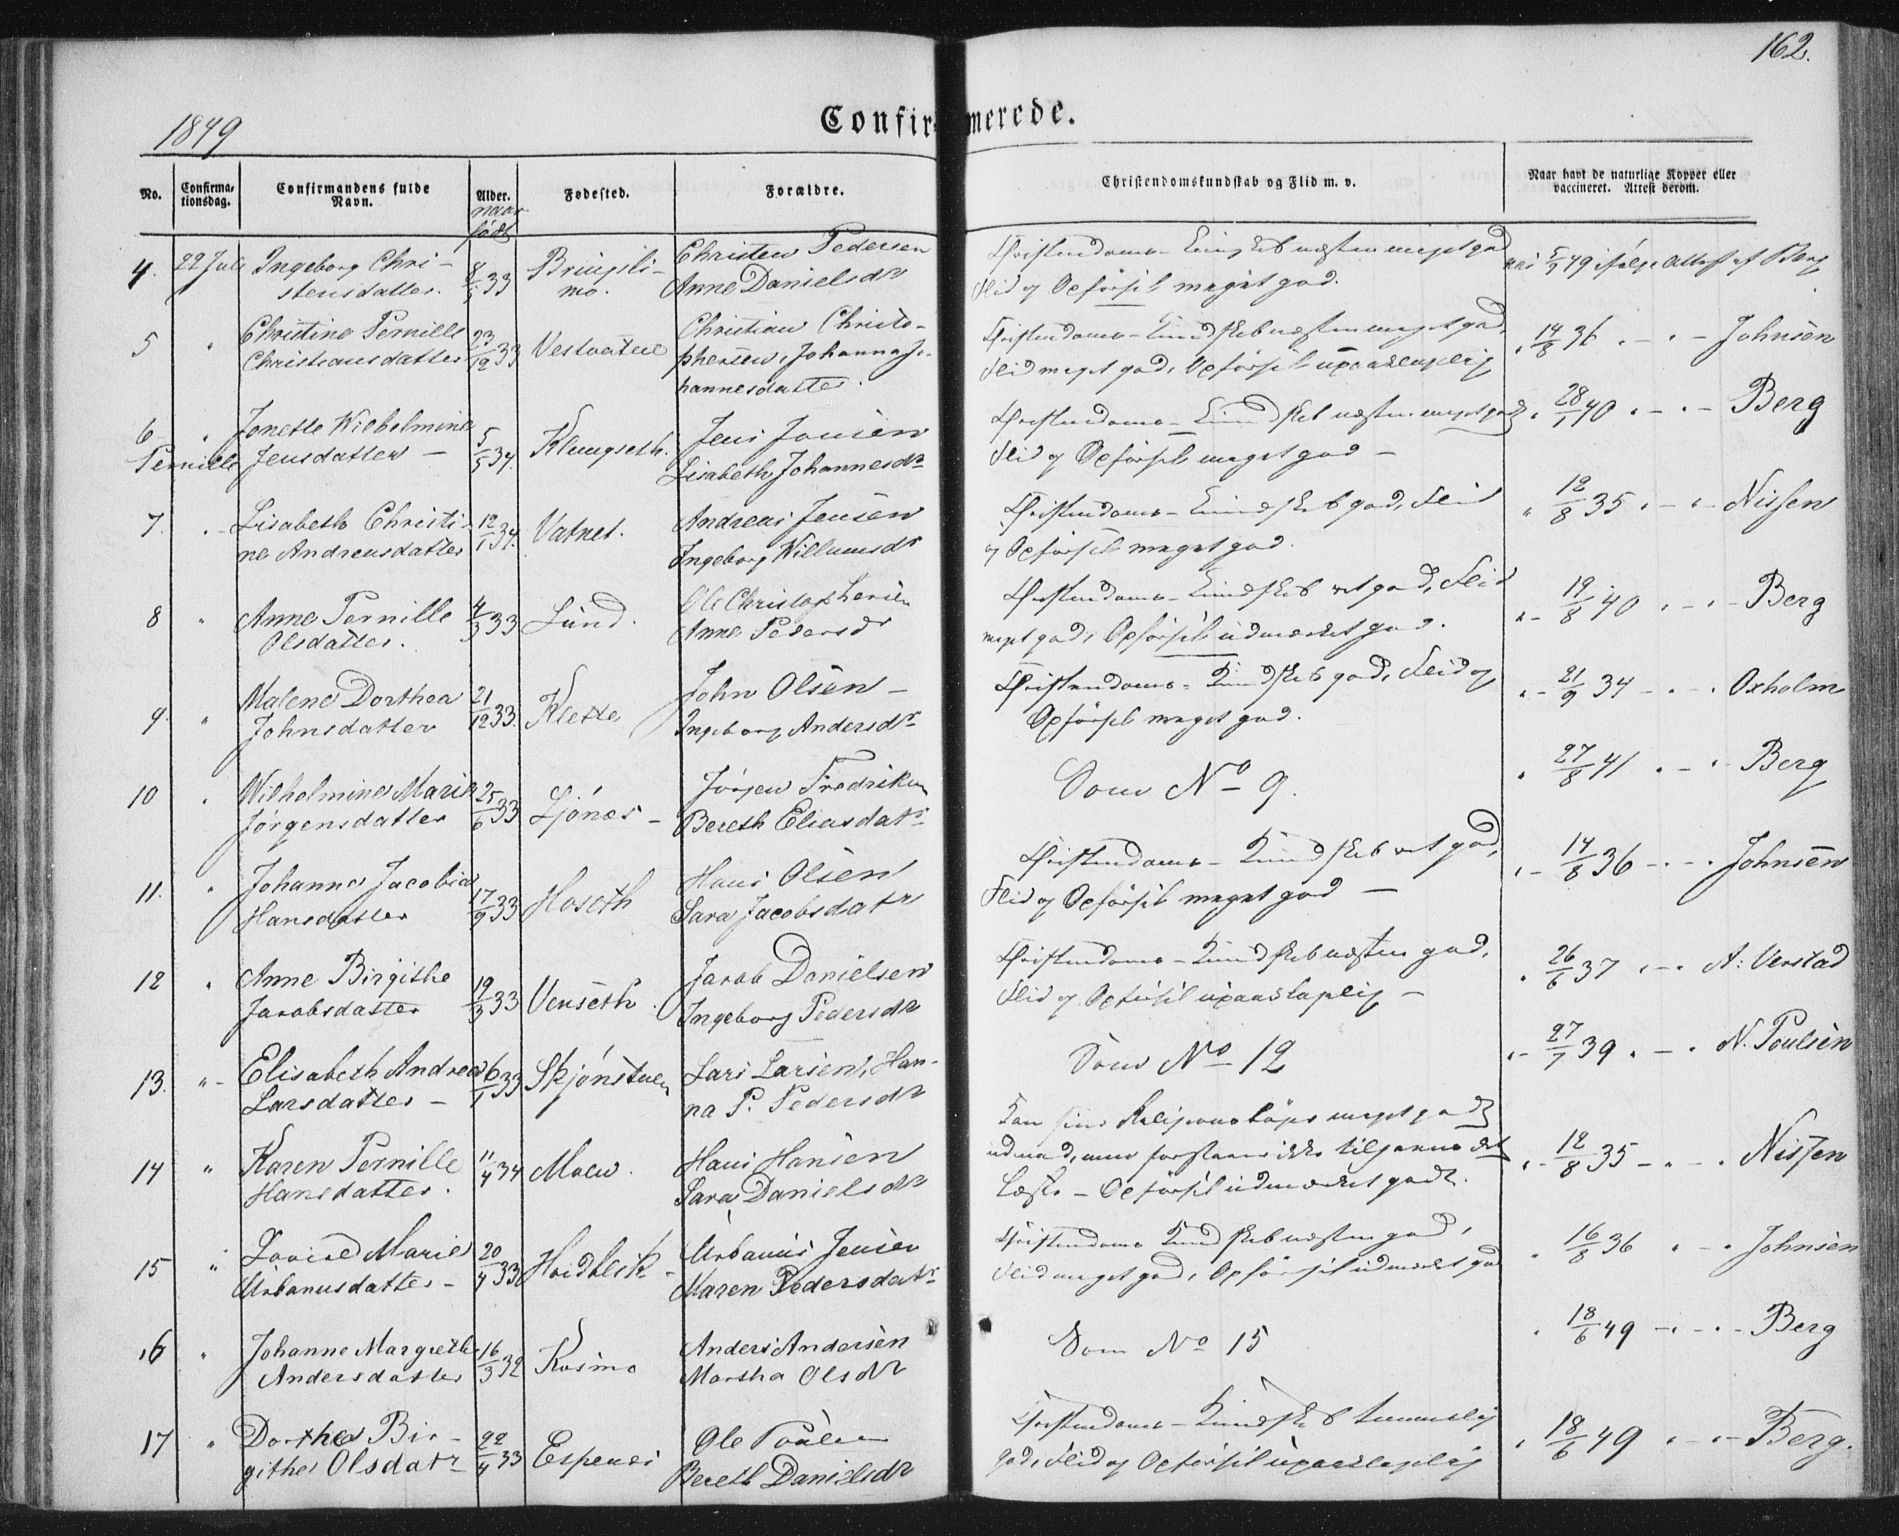 162.
1849
Confirmerede.
No.
Confirma-
tionsdag.
Confirmandens fulde
Navn.
Alder.
naar
født
Fødested.
Forældre.
Christendomskundskab og Flid m. v.
Naar havt de naturlige Kopper eller
vaccineret. Attest derom.
4. 22 Juli Ingeborg Chri- 8/5 33 Christen Pedersen Christendoms-Kundskab næsten meget god
stensdatter. mo. Anne Danielsdr Flid og Opførsel meget god.
5/7 49 ifølge Attest af Berg
5 " Christine Pernille 23/12 33 Vestvatne Christian Christo- Christendoms-Kundskab næsten meget god,
Christiansdatter phersen, Johanna Jo- Flid meget god, Opførsel upaaklagelig
hannesdatter.
" 14/8 36 " - " - Johnsen
6 " Jonette Wilhelmine 5/5 34. Klungseth. Jens Jensen Christendoms-Kundskab næsten meget god
Pernille Jensdatter - Lisabeth Johannesdr Flid og Opførsel meget god -
" 28/1 40 " - " - Berg
7. " - Lisabeth Christi- 12/1 34. Vatnet. Andreas Jensen Christendoms-Kundskab god, Flid
ne Andreasdatter Ingeborg Willumsdr og Opførsel meget god.
" 12/8 35 " - " - Nissen
8 " Anne Pernille 4/3 33 Lund. Ole Christophersen Christendoms-Kundskab ret god, Flid
Olsdatter. Anne Pedersdr meget god, Opførsel udmærket god.
" - 19/8 40 " - " - Berg
9. " Malene Dorthea 21/12 33. Klette John Olsen - Christendoms-Kundskab god, Flid og
Johnsdatter Ingeborg Andersdr Opførsel meget god.
" - 21/9 34 - " - " Oxholm
10 " Wilhelmine Marie 25/6 33 Ljønes - Jørgen Fredriksen Som No 9.
Jørgensdatter Bereth Eliasdatr
" 27/8 41 " - " - Berg
11. " Johanna Jacobia 17/9 33 Hoseth Hans Olsen Christendoms-Kundskab ret god,
Hansdatter Sara Jacobsdatr Flid og Opførsel meget god -
" - 14/8 36 - " - " Johnsen
12 " Anne Birgithe 19/3 33 Venseth. Jacob Danielsen Christendoms-Kundskab næsten god,
Jacobsdatter Ingeborg Pedersdr Flid og Opførsel upaaklagelig -
" 26/6 37 " - " A: Verstad
13. " - Elisabeth Andrea 6/1 33 Skjønstuen Lars Larsen, Han- Som No 12
Larsdatter - na P. Pedersdr
" - 27/7 39 " - " N. Poulsen
14 " Karen Pernille 11/4 34 Moen. Hans Hansen Kan sin Religionsbog meget godt
Hansdatter. Sara Danielsdr udenad, men forstaaer ikke tilgavns det
Læste - Opførsel udmærket godt.
" - 12/8 35 - " - " Nissen
15 " Lovise Marie 20/4 33 Urbanus Jensen Christendoms Kundskab næsten god,
Urbanusdatter - Maren Pedersdatr Flid meget god, Opførsel udmærket god
" 16/8 36 " - " Johnsen
16 " Johanne Margrethe 16/3 32 Kosmo Anders Andersen Som No 15
Andersdatter Martha Olsdr
" 18/6 49 - " - " - Berg
17 " Dorthea Bir- 22/4 33 Espenes Ole Poulsen Christendoms-Kundskab temmelig
githe Olsdatr Bereth Danielsdr god, Flid og Opførsel upaaklagelig
" 18/6 49 " - " - Berg.